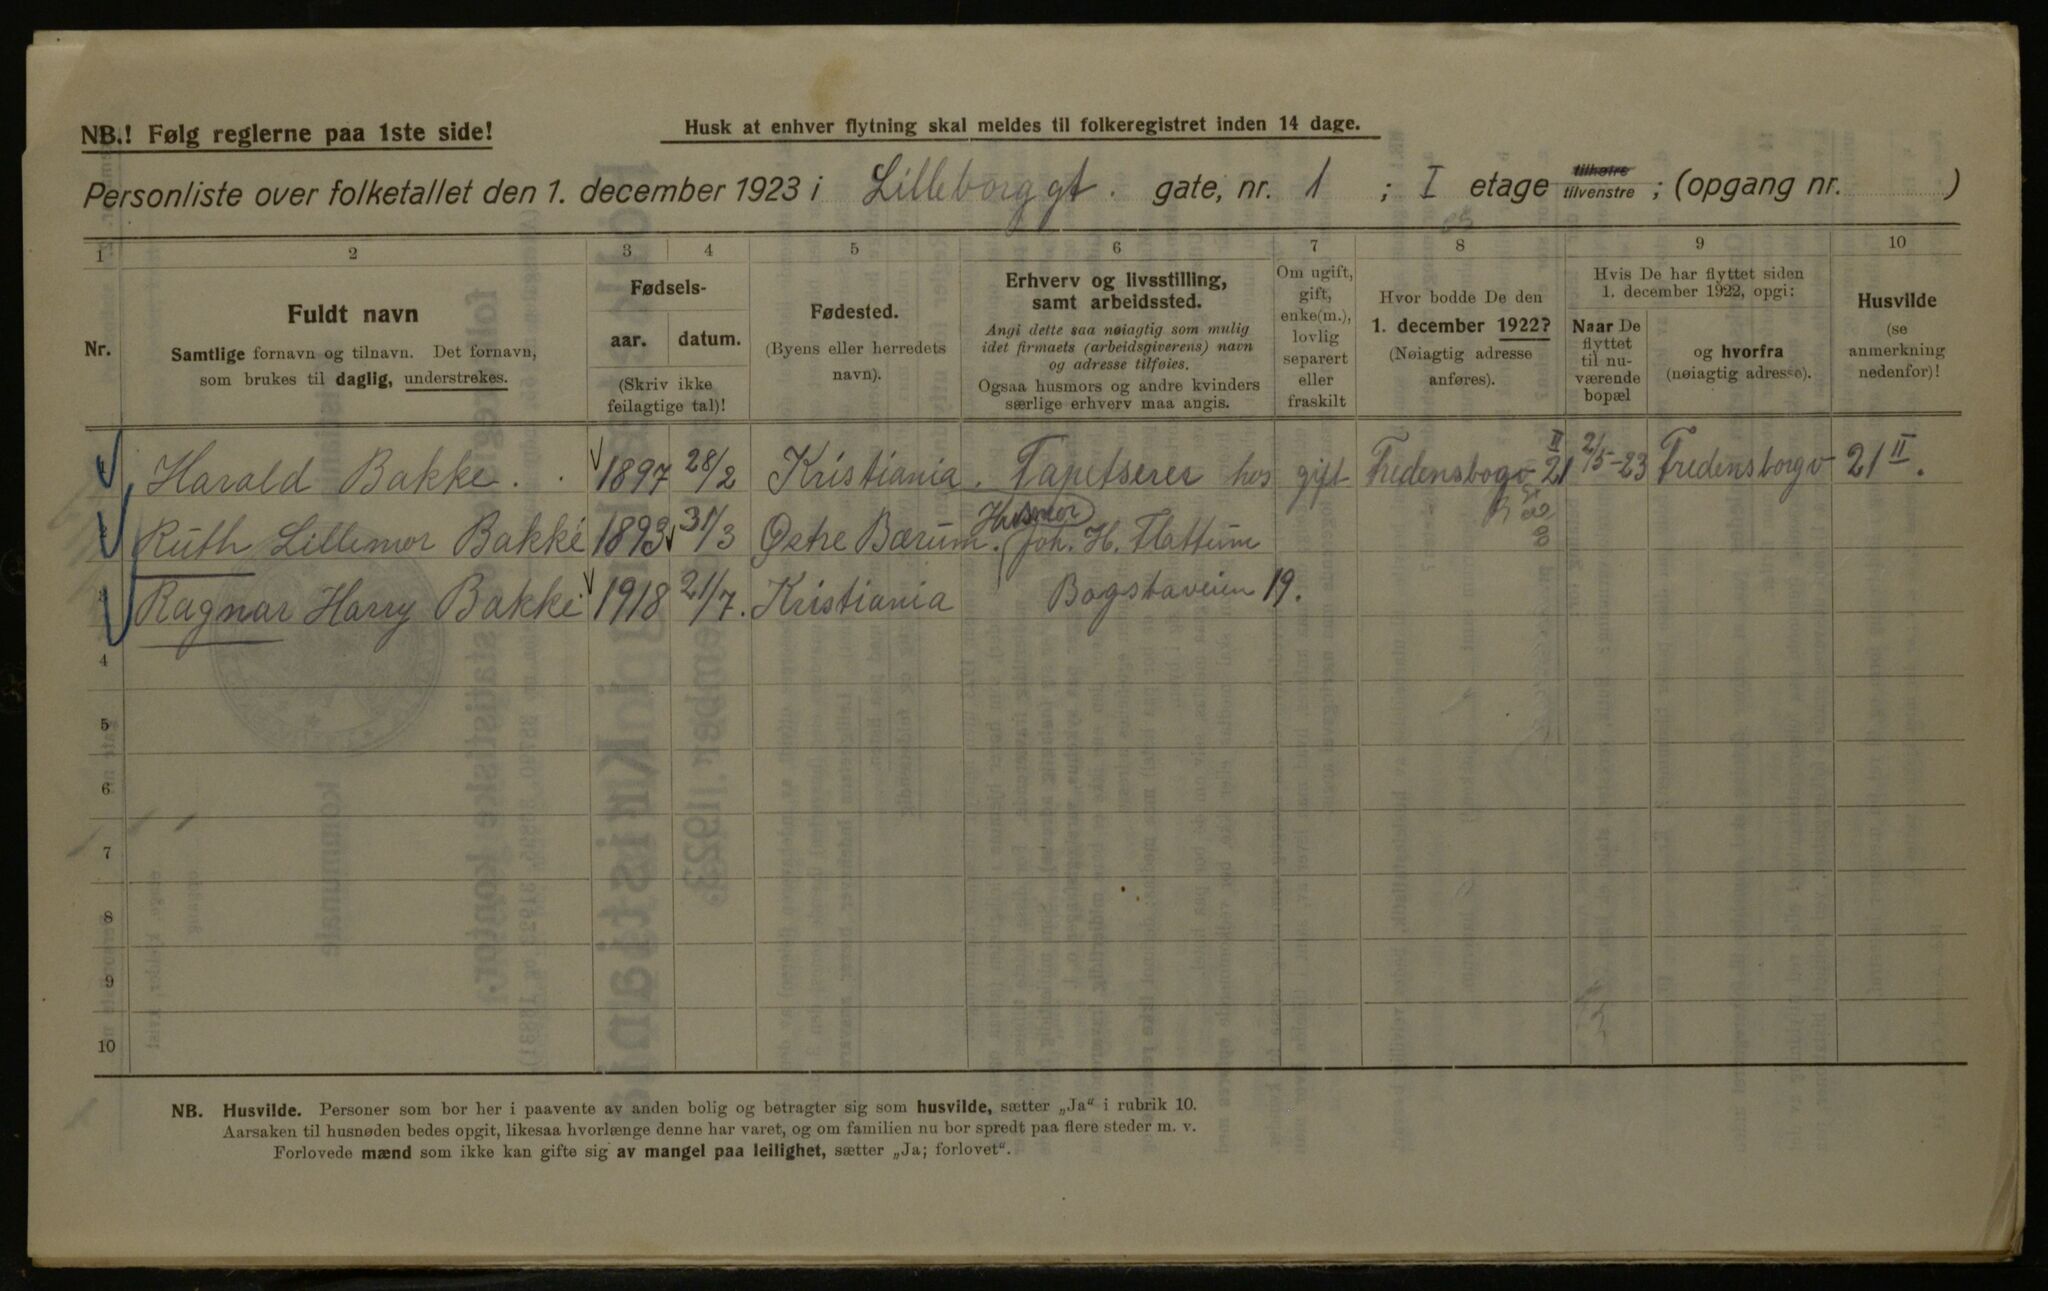 NB.! Følg reglerne paa 1ste side!
Husk at enhver flytning skal meldes til folkeregistret inden 14 dage.
Personliste over folketallet den 1. december 1923 i Lilleborggt. gate, nr. 1 ; I etage tilhøire tilvenstre ; (opgang nr. )
1 2 3 4 5 6 7 8 9 10
Nr.
Fuldt navn
Samtlige fornavn og tilnavn. Det fornavn,
som brukes til daglig, understrekes.
Fødsels-
aar. datum.
(Skriv ikke
feilagtige tal)!
Fødested.
(Byens eller herredets
navn).
Erhverv og livsstilling,
samt arbeidssted.
Angi dette saa nøiagtig som mulig
idet firmaets (arbeidsgiverens) navn
og adresse tilføies.
Ogsaa husmors og andre kvinders
særlige erhverv maa angis.
Om ugift,
gift,
enke(m.),
lovlig
separert
eller
fraskilt
Hvor bodde De den
1. december 1922?
(Nøiagtig adresse
anføres).
Hvis De har flyttet siden
1. december 1922, opgi:
Naar De
flyttet
til nu-
værende
bopæl
og hvorfra
(nøiagtig adresse).
Husvilde
(se
anmerkning
nedenfor)!
Harald Bakke. 1897 28/2 Kristiania. Tapetserer hos gift Fredensbogv 21 II 2/5-23 Fredensborgv 21 II.
Ruth Lillemor Bakke 1893 31/3 Østre Bærum. Husmor Joh. H. Flattum
3 Ragnar Harry Bakke 1918 21/7. Kristiania Bogstaveien 19.
4
5
6
7
8
9
10
NB. Husvilde. Personer som bor her i paavente av anden bolig og betragter sig som husvilde, sætter „Ja“ i rubrik 10.
Aarsaken til husnøden bedes opgit, likesaa hvorlænge denne har varet, og om familien nu bor spredt paa flere steder m. v.
Forlovede mænd som ikke kan gifte sig av mangel paa leilighet, sætter „Ja; forlovet“.